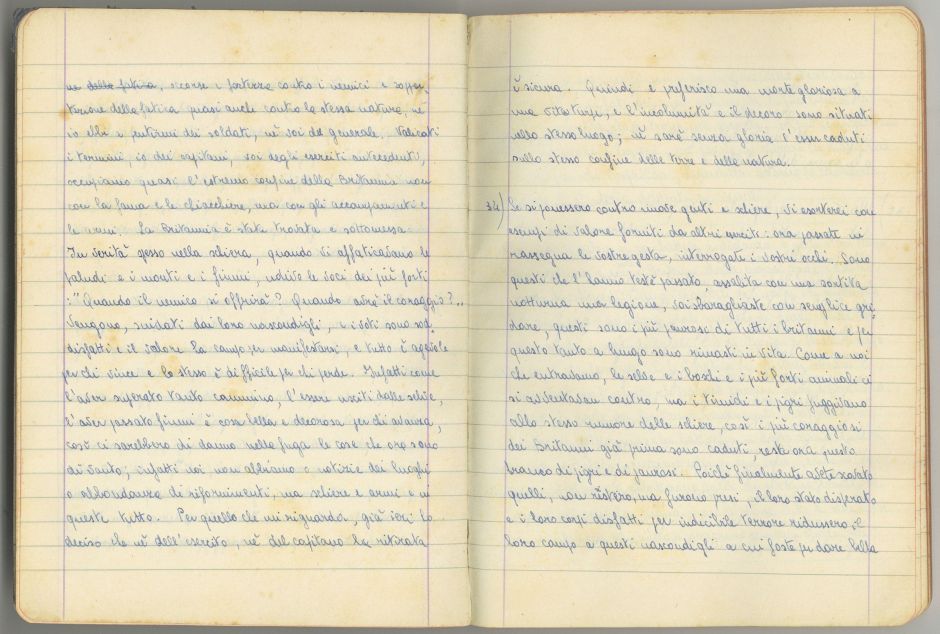 ne della fatica, occorse i fortezza contro i nemici e soppor
tazione della fatica quasi anche contro la stessa natura, nè
io ebbi a pentirmi dei soldati, nè voi del generale. Valicati
i termini, io dei capitani, voi degli eserciti antecedenti,
occupiamo quasi l'estremo confine della Britannia non
con la fama e le chiacchiere, ma con gli accampamenti e
le armi. La Britannia è stata trovata e sottomessa.
In verità spesso nella schiera, quando vi affaticavano le
paludi e i monti e i fiumi, udivo le voci dei più forti
: "Quando il nemico si offrirà? Quando avrà il coraggio?..
Vengono, snidati dai loro nascondigli, e i voti sono sod
disfatti e il valore ha campo per manifestarsi, e tutto è agevole
per chi vince e lo stesso è difficile per chi perde. Infatti come
l'aver superato tanto cammino, l'essere usciti dalle selve,
l'aver passato fiumi è cosa bella e decorosa per chi avanza,
così ci sarebbero di danno nella fuga le cose che ora sono
di vanto; infatti noi non abbiamo o notizie dei luoghi
o abbondanza di rifornimenti, ma schiere e armi e in
queste tutto. Per quello che mi riguarda, già ieri ho
deciso che nè dell'esercito, nè del capitano la ritirata
è sicura. Quindi e preferisco una morte gloriosa a
una vita turpe, e l'incolumità e il decoro sono situati
nello stesso luogo; nè sarà senza gloria l'esser caduti
nello stesso confine delle terre e della natura.
34) Se si ponessero contro nuove genti e schiere, vi esorterei con
esempi di valore forniti da altri eserciti: ora passate in
rassegna le vostre gesta, interrogate i vostri occhi. Sono
questi che l'anno testè passato, assalita con una sortita
notturna una legione, voi sbaragliaste con semplice gri
dare, questi sono i più paurosi di tutti i britanni e per
questo tanto a lungo sono rimasti in vita. Come a noi
che entravamo, le selve e i boschi e i più forti animali ci
si avventavan contro, ma i timidi e i pigri fuggivano
allo stesso rumore delle schiere, così i più coraggiosi
dei Britanni già prima sono caduti, resta ora questo
branco di pigri e di paurosi. Poichè finalmente avete trovato
quelli, non ristero, ma furono presi, il loro stato disperato
e i loro corpi disfatti per indicibile terrore ridussero il
loro campo a questi nascondigli a cui foste per dare bella